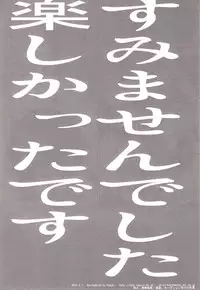 すみませんでした
楽しかったです